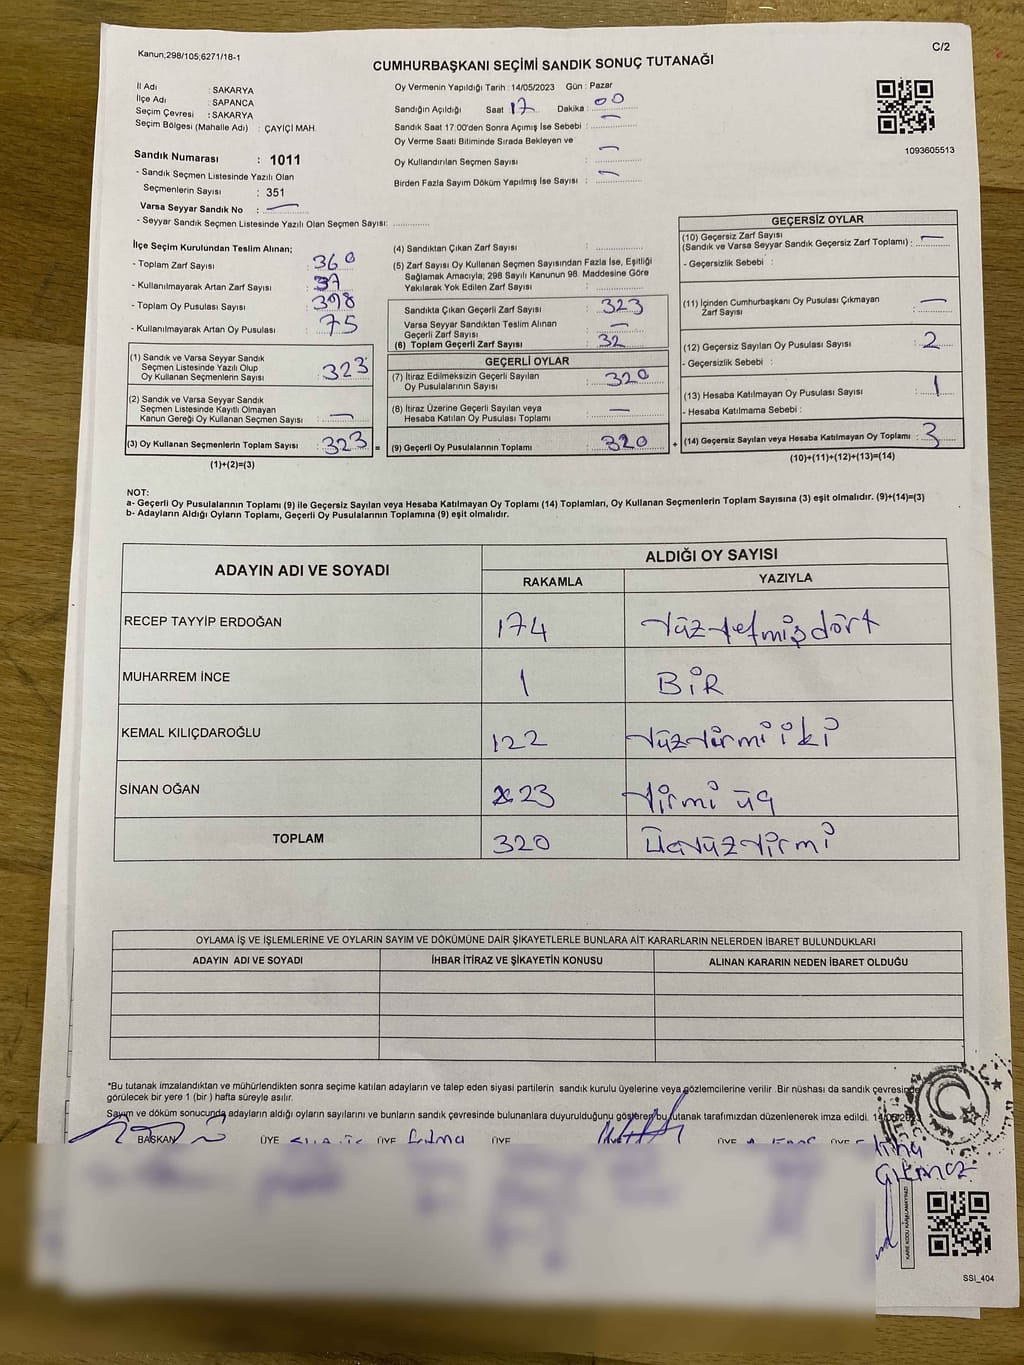 Kanun;298/105;6271/18-1
C/2
CUMHURBAŞKANI SEÇİMİ SANDIK SONUÇ TUTANAĞI
İl Adı : SAKARYA
İlçe Adı : SAPANCA
Seçim Çevresi : SAKARYA
Seçim Bölgesi (Mahalle Adı) : ÇAYİÇİ MAH.
Sandık Numarası : 1011
- Sandık Seçmen Listesinde Yazılı Olan
Seçmenlerin Sayısı : 351
Varsa Seyyar Sandık No : —
- Seyyar Sandık Seçmen Listesinde Yazılı Olan Seçmen Sayısı: ............
Oy Vermenin Yapıldığı Tarih : 14/05/2023 Gün : Pazar
Sandığın Açıldığı Saat 17 Dakika : 00
Sandık Saat 17:00'den Sonra Açımış İse Sebebi : —
Oy Verme Saati Bitiminde Sırada Bekleyen ve
Oy Kullandırılan Seçmen Sayısı : —
Birden Fazla Sayım Döküm Yapılmış İse Sayısı : —
1093605513
İlçe Seçim Kurulundan Teslim Alınan;
- Toplam Zarf Sayısı : 360
- Kullanılmayarak Artan Zarf Sayısı : 37
- Toplam Oy Pusulası Sayısı : 398
- Kullanılmayarak Artan Oy Pusulası : 75
(1) Sandık ve Varsa Seyyar Sandık
Seçmen Listesinde Yazılı Olup
Oy Kullanan Seçmenlerin Sayısı : 323
(2) Sandık ve Varsa Seyyar Sandık
Seçmen Listesinde Kayıtlı Olmayan
Kanun Gereği Oy Kullanan Seçmen Sayısı : —
(3) Oy Kullanan Seçmenlerin Toplam Sayısı : 323 =
(1)+(2)=(3)
(4) Sandıktan Çıkan Zarf Sayısı : ............
(5) Zarf Sayısı Oy Kullanan Seçmen Sayısından Fazla İse, Eşitliği
Sağlamak Amacıyla; 298 Sayılı Kanunun 98. Maddesine Göre
Yakılarak Yok Edilen Zarf Sayısı : ............
Sandıkta Çıkan Geçerli Zarf Sayısı : 323
Varsa Seyyar Sandıktan Teslim Alınan
Geçerli Zarf Sayısı : —
(6) Toplam Geçerli Zarf Sayısı : 32
GEÇERLİ OYLAR
(7) İtiraz Edilmeksizin Geçerli Sayılan
Oy Pusulalarının Sayısı : 320
(8) İtiraz Üzerine Geçerli Sayılan veya
Hesaba Katılan Oy Pusulası Toplamı : —
(9) Geçerli Oy Pusulalarının Toplamı : 320 +
GEÇERSİZ OYLAR
(10) Geçersiz Zarf Sayısı
(Sandık ve Varsa Seyyar Sandık Geçersiz Zarf Toplamı) : —
- Geçersizlik Sebebi :
(11) İçinden Cumhurbaşkanı Oy Pusulası Çıkmayan
Zarf Sayısı : —
(12) Geçersiz Sayılan Oy Pusulası Sayısı : 2
- Geçersizlik Sebebi :
(13) Hesaba Katılmayan Oy Pusulası Sayısı : 1
- Hesaba Katılmama Sebebi :
(14) Geçersiz Sayılan veya Hesaba Katılmayan Oy Toplamı : 3
(10)+(11)+(12)+(13)=(14)
NOT:
a- Geçerli Oy Pusulalarının Toplamı (9) ile Geçersiz Sayılan veya Hesaba Katılmayan Oy Toplamı (14) Toplamları, Oy Kullanan Seçmenlerin Toplam Sayısına (3) eşit olmalıdır. (9)+(14)=(3)
b- Adayların Aldığı Oyların Toplamı, Geçerli Oy Pusulalarının Toplamına (9) eşit olmalıdır.
ADAYIN ADI VE SOYADI
ALDIĞI OY SAYISI
RAKAMLA YAZIYLA
RECEP TAYYİP ERDOĞAN 174 Yüzyetmişdört
MUHARREM İNCE 1 BİR
KEMAL KILIÇDAROĞLU 122 Yüzyirmi iki
SİNAN OĞAN 23 Yirmi üç
TOPLAM 320 Üçyüzyirmi
OYLAMA İŞ VE İŞLEMLERİNE VE OYLARIN SAYIM VE DÖKÜMÜNE DAİR ŞİKAYETLERLE BUNLARA AİT KARARLARIN NELERDEN İBARET BULUNDUKLARI
ADAYIN ADI VE SOYADI İHBAR İTİRAZ VE ŞİKAYETİN KONUSU ALINAN KARARIN NEDEN İBARET OLDUĞU
*Bu tutanak imzalandıktan ve mühürlendikten sonra seçime katılan adayların ve talep eden siyasi partilerin sandık kurulu üyelerine veya gözlemcilerine verilir. Bir nüshası da sandık çevresinde
görülecek bir yere 1 (bir) hafta süreyle asılır.
Sayım ve döküm sonucunda adayların aldığı oyların sayılarını ve bunların sandık çevresinde bulunanlara duyurulduğunu gösteren bu tutanak tarafımızdan düzenlenerek imza edildi. 14/05/2023
BAŞKAN ÜYE ÜYE Fatma ÜYE ÜYE ÜYE
KARE KODU KARALAMAYINIZ!
SSİ_404